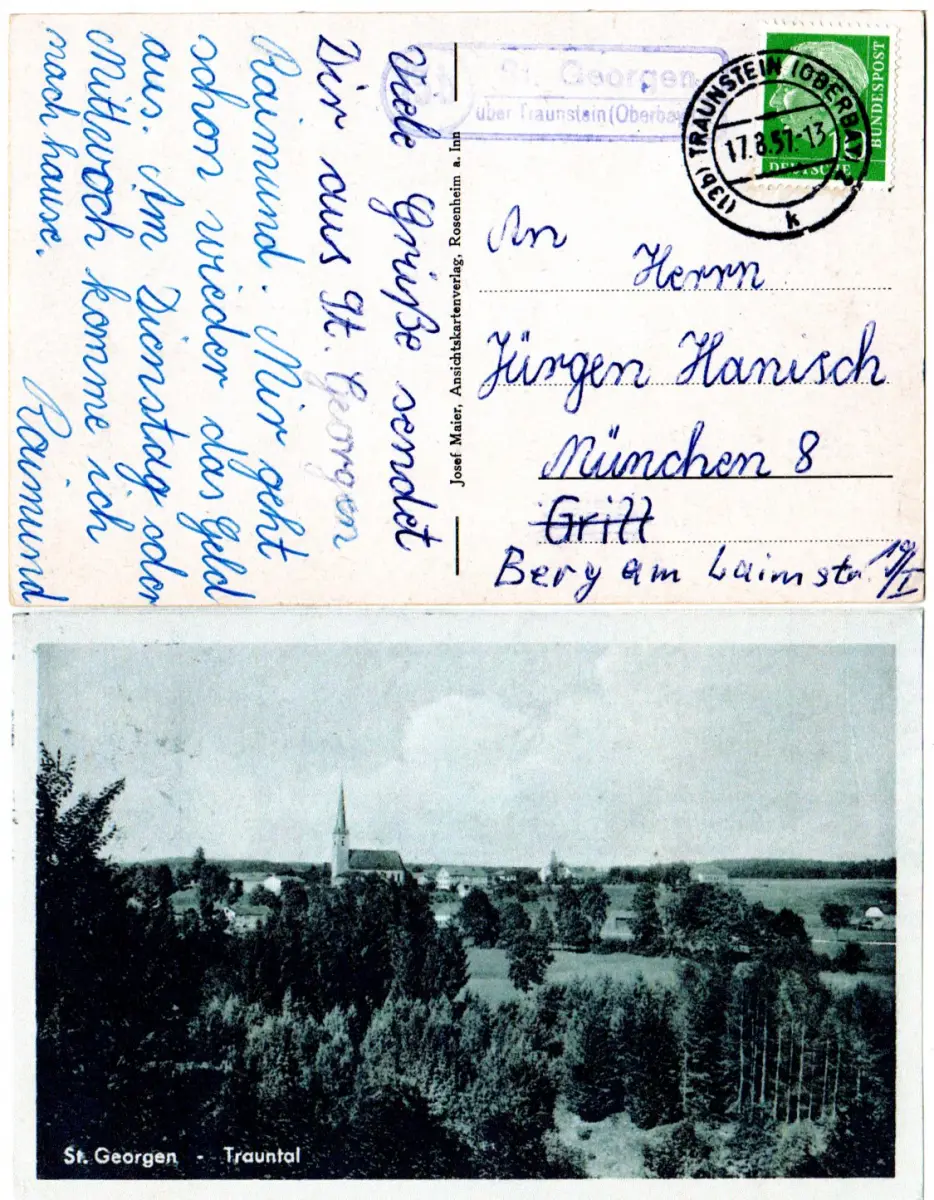 St. Georgen
über Traunstein (Oberbay
(13b) TRAUNSTEIN (OBERBAY) 2
17.8.57.-13
k
DEUTSCHE
BUNDESPOST
Viele Grüße sendet
Dir aus St. Georgen
Raimund. Mir geht
schon wieder das Geld
aus. Am Dienstag oder
Mittwoch komme ich
nach hause.
Raimund
Josef Maier, Ansichtskartenverlag, Rosenheim a. Inn
An
Herrn
Jürgen Hanisch
München 8
Grill
Berg am Laimstr. 19/I
St. Georgen - Trauntal